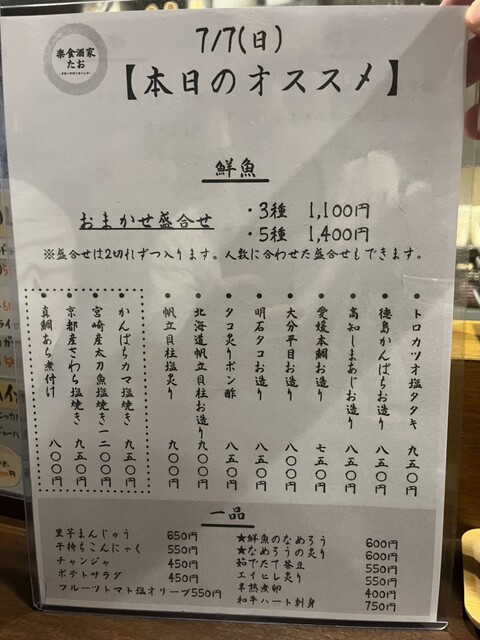 楽食酒家
たお
7/7(日)
【本日のオススメ】
鮮魚
おまかせ盛合せ
・3種 1,100円
・5種 1,400円
※盛合せは2切れずつ入ります。人数に合わせた盛合せもできます。
・トロカツオ塩タタキ 九五〇円
・徳島かんぱちお造り 八五〇円
・高知しまあじお造り 八五〇円
・愛媛本鯛お造り 七五〇円
・大分平目お造り 八〇〇円
・明石タコお造り 八五〇円
・タコ炙りポン酢 八五〇円
・北海道帆立貝柱お造り 九〇〇円
・帆立貝柱塩炙り 九〇〇円
・かんぱちカマ塩焼き 九五〇円
・宮崎産太刀魚塩焼き 一二〇〇円
・京都産さわら塩焼き 九五〇円
・真鯛あら煮付け 八〇〇円
一品
里芋まんじゅう 650円
子持ちこんにゃく 550円
チャンジャ 450円
ポテトサラダ 450円
フルーツトマト塩オリーブ 550円
★鮮魚のなめろう 600円
★なめろうの炙り 600円
茹でたて茶豆 550円
エイヒレ炙り 550円
半熟煮卵 400円
和牛ハート刺身 750円